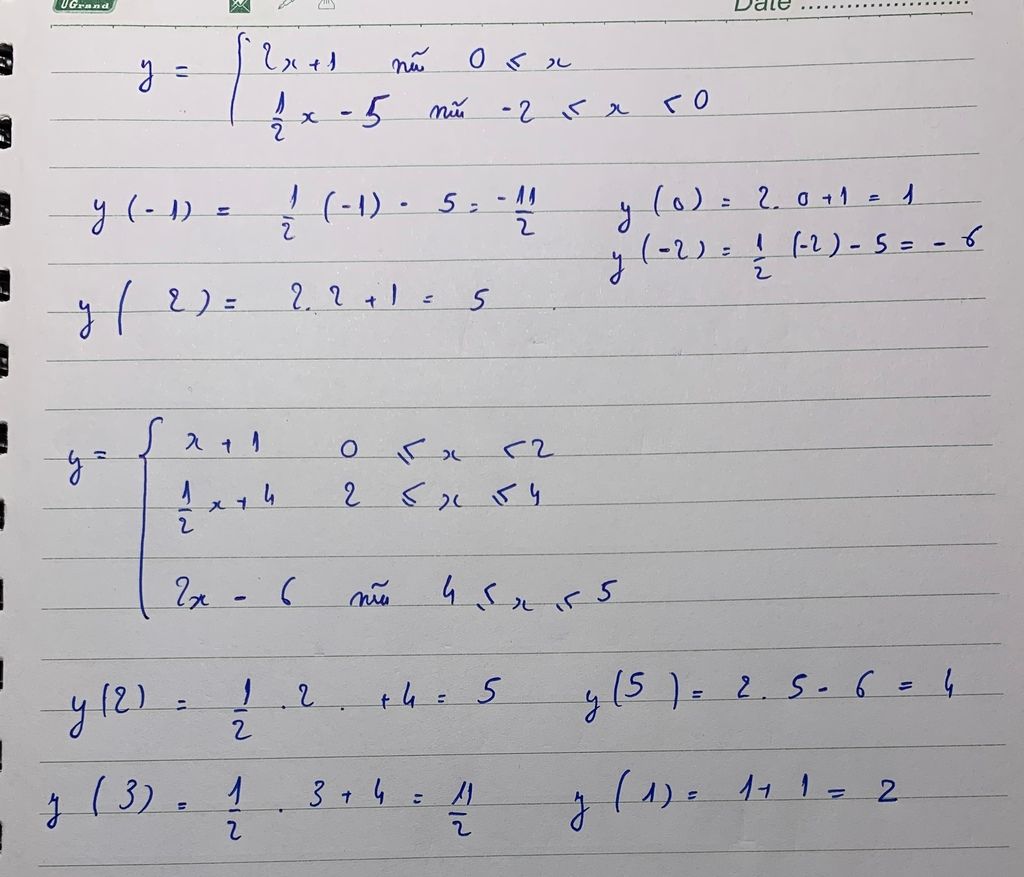 UGrand
Date ........................
y = { 2x + 1 nếu 0 ≤ x
1/2 x - 5 nếu -2 ≤ x < 0
y (-1) = 1/2 (-1) - 5 = -11/2 y (0) = 2. 0 + 1 = 1
y (-2) = 1/2 (-2) - 5 = - 6
y ( 2) = 2. 2 + 1 = 5
y = { x + 1 0 ≤ x < 2
1/2 x + 4 2 ≤ x ≤ 4
2x - 6 nếu 4 ≤ x ≤ 5
y (2) = 1/2 . 2 . + 4 = 5 y (5) = 2. 5 - 6 = 4
y (3) = 1/2 . 3 + 4 = 11/2 y (1) = 1 + 1 = 2